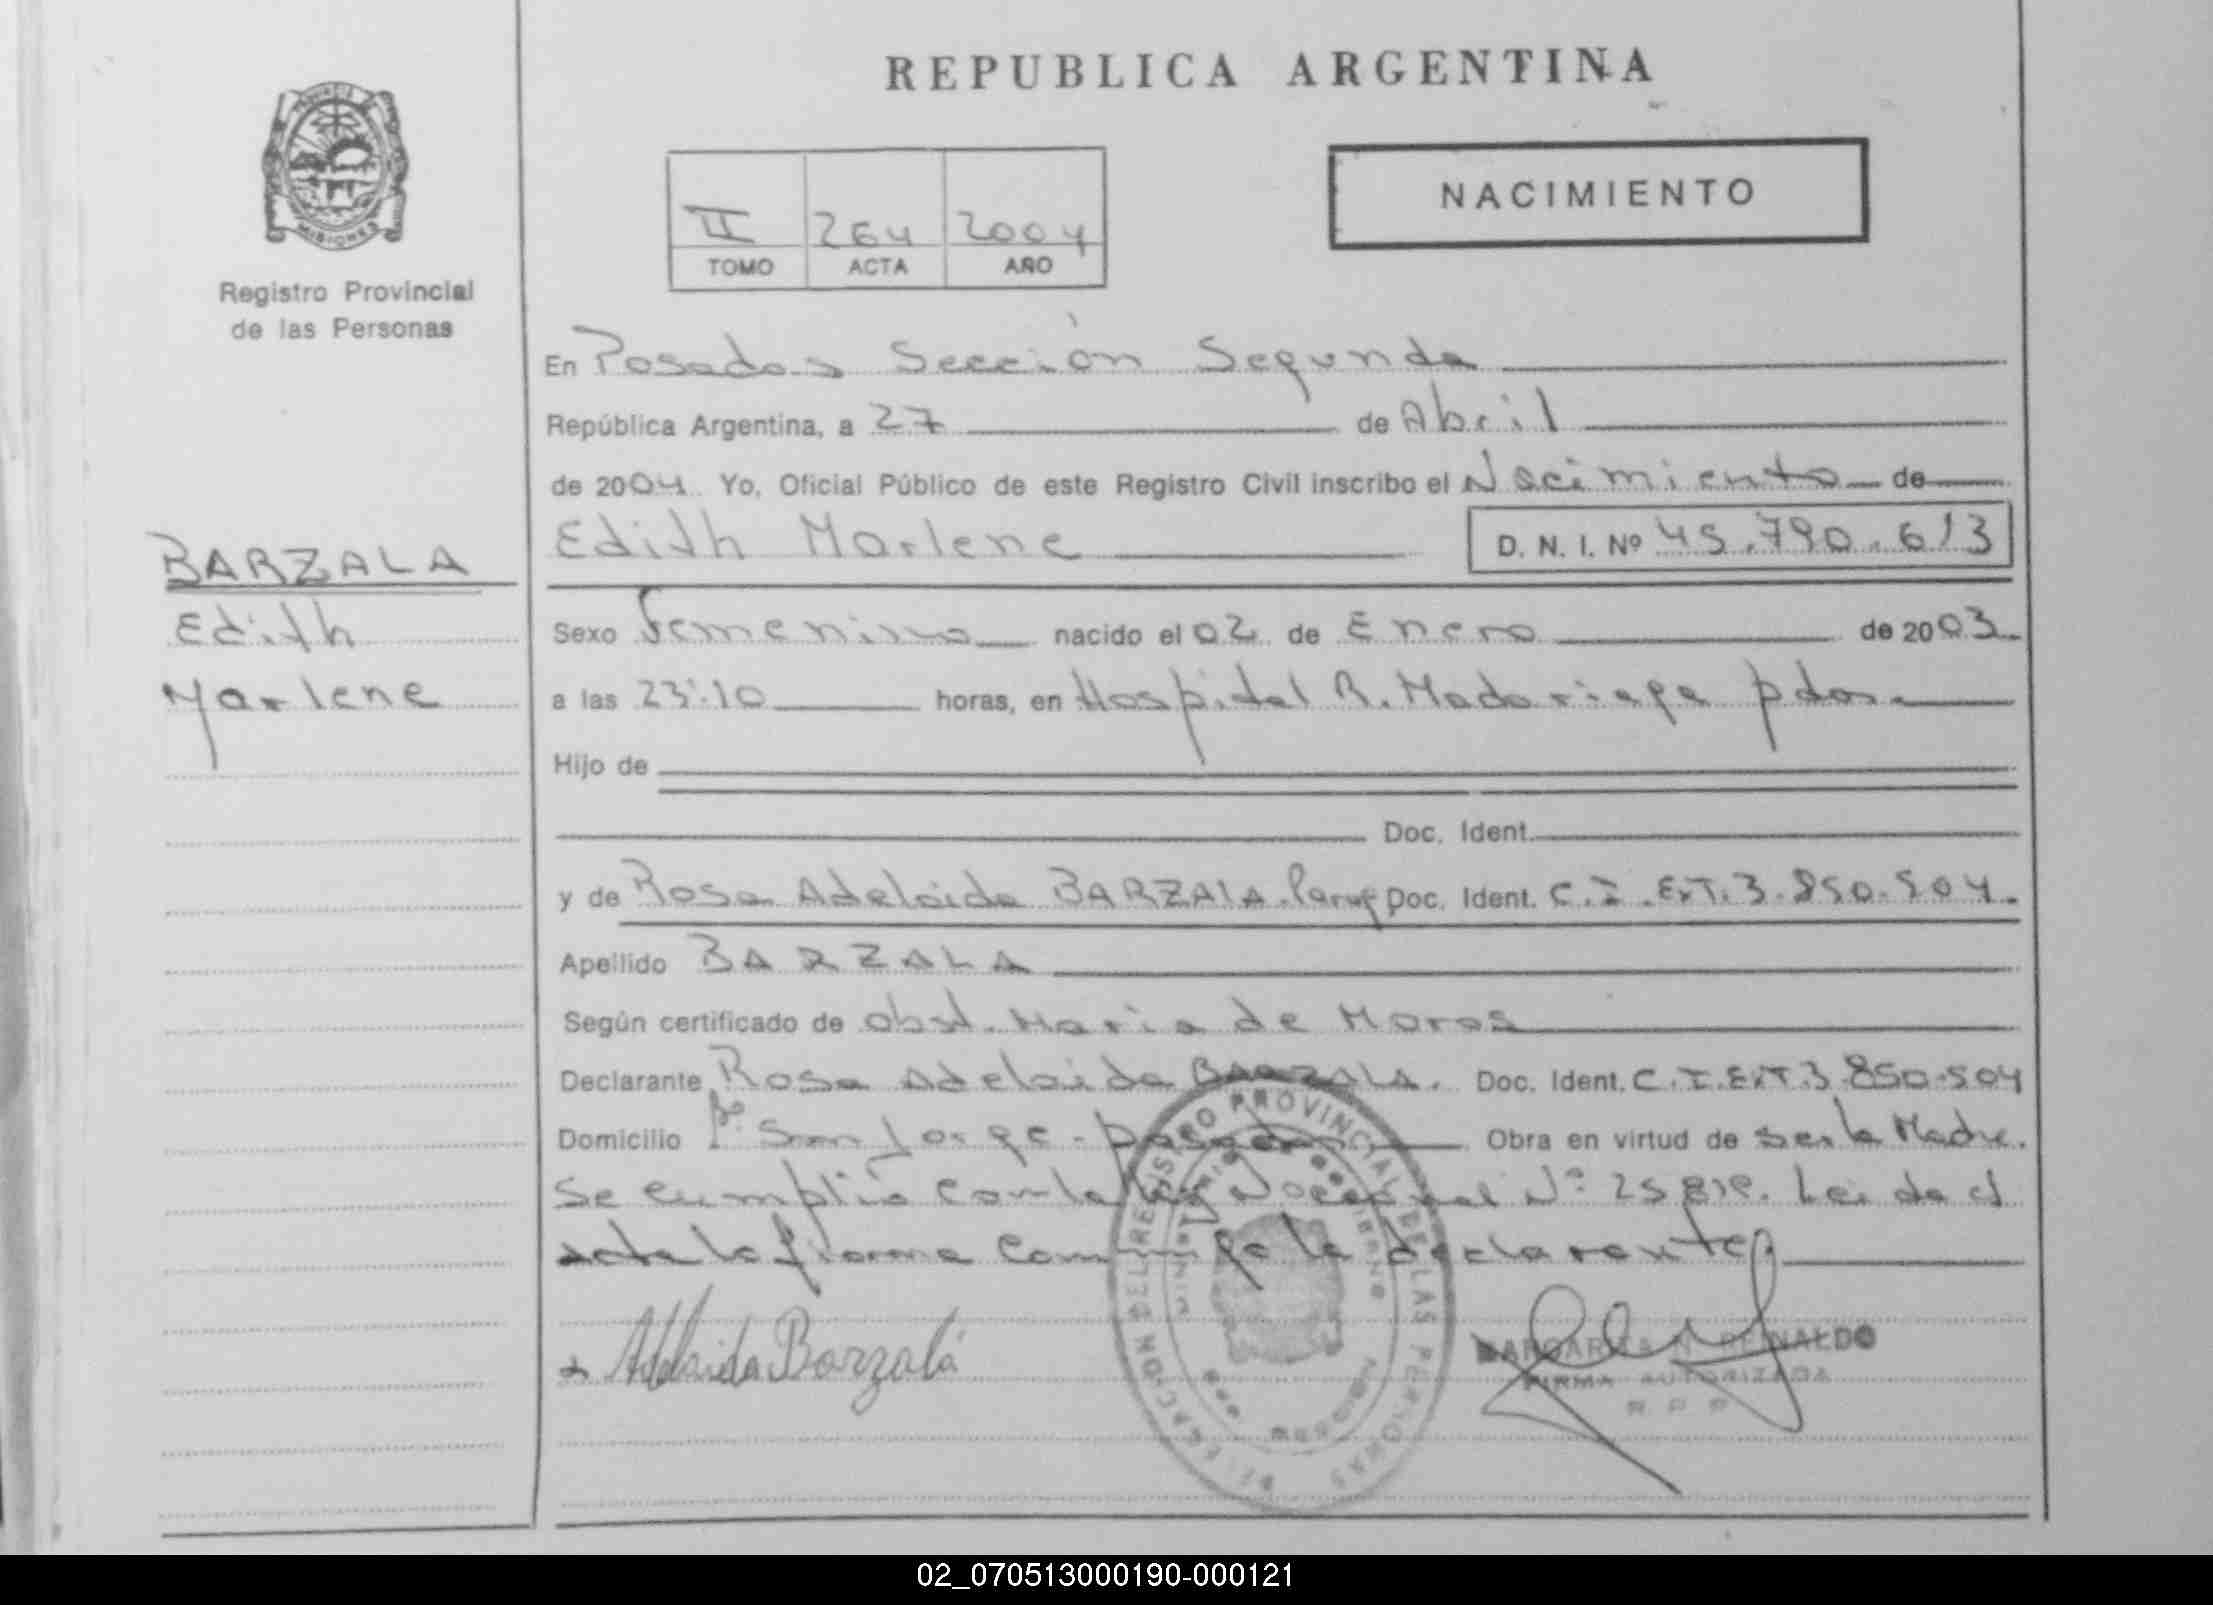 REPUBLICA ARGENTINA
PROVINCIA DE
MISIONES
Registro Provincial
de las Personas
II 264 2004
TOMO ACTA AÑO
NACIMIENTO
En Posadas Sección Segunda
República Argentina, a 27 de Abril
de 2004 Yo, Oficial Público de este Registro Civil inscribo el Nacimiento de
Edith Marlene D. N. I. Nº 45.790.613
BARZALA
Edith
Marlene
Sexo Femenino nacido el 02 de Enero de 2003
a las 23:10 horas, en Hospital R. Madariaga pdas.
Hijo de
Doc. Ident.
y de Rosa Adelaida BARZALA. Parag Doc. Ident. C.I.EXT.3.850.504.
Apellido BARZALA
Según certificado de obst. Maria de Moras
Declarante Rosa Adelaida BARZALA. Doc. Ident. C.I.EXT.3.850.504
Domicilio Bº San Jorge - posadas Obra en virtud de ser la Madre.
Se cumplió con la ley Nacional Nº 25.819. Leida el
acta la firma conmigo la declarante
Adelaida Barzalá
DELEGACION DEL REGISTRO PROVINCIAL DE LAS PERSONAS
MARGARITA N. REINALDO
FIRMA AUTORIZADA
R. P. P.
02_070513000190-000121